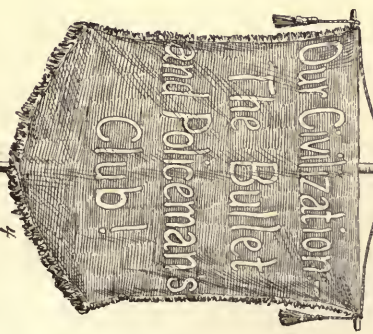 Our Civilization—
The Bullet
and Policemans
Club!
4